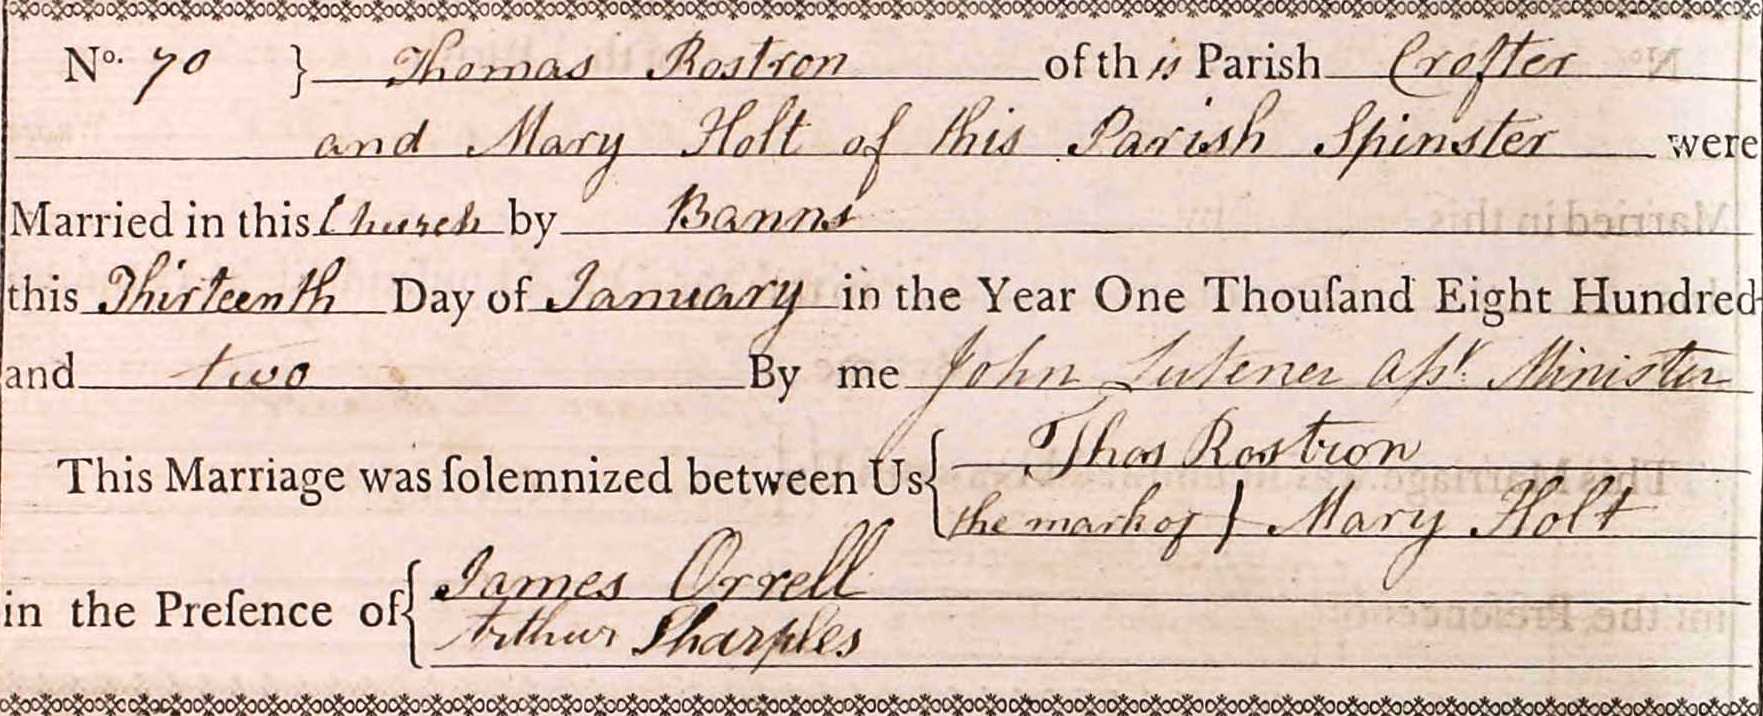 No. 70 } Thomas Rostron of this Parish Crofter
and Mary Holt of this Parish Spinster were
Married in this Church by Banns
this Thirteenth Day of January in the Year One Thouſand Eight Hundred
and two By me John Lutener Aſst. Minister
This Marriage was ſolemnized between Us { Thos Rostron
the mark of } Mary Holt
in the Preſence of { James Orrell
Arthur Sharples